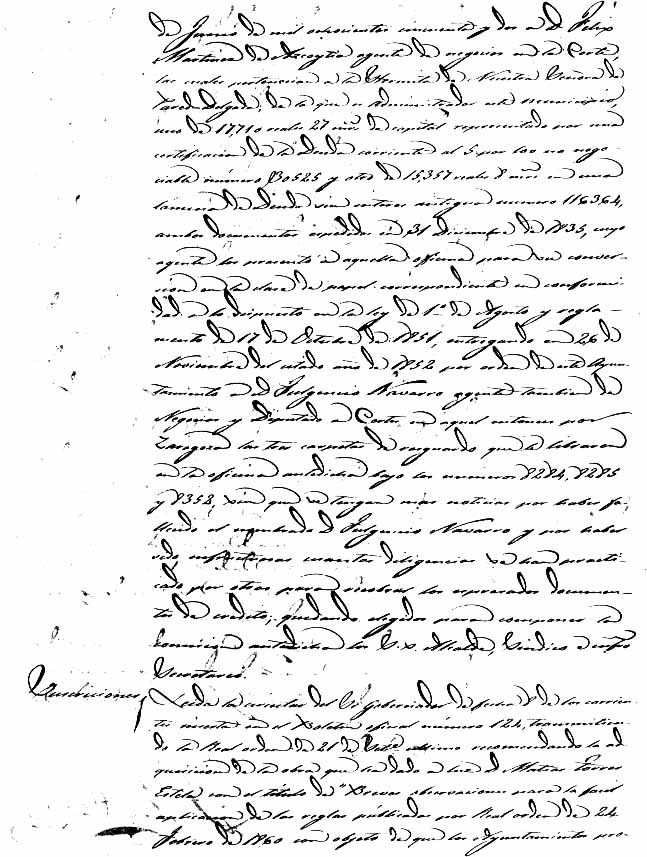 de Junio de mil ochocientos cincuenta y dos a D. Felix
Martinez de Azcoytia agente de negocios en la Corte,
las cuales pertenecian a la Hermita de Nuestra Señora de
de la que es Administrador este municipio,
uno de 17,710 reales 27 mrs. de capital representado por una
certificacion de la Deuda corriente al 5 por 100 no nego-
ciable número 80525 y otro de 15,357 reales 8 mrs en una
lamina de Deuda sin interes antigua numero 116364,
ambos documentos expedidos en 31 Diciembre de 1835, cuyo
agente los presentó a aquella oficina para su conver-
sion en la clase de papel correspondiente en conformi-
dad a lo dispuesto en la ley de 1º de Agosto y regla-
mento de 17 de Octubre de 1851, entregando en 26 de
Noviembre del citado año de 1852 por orden de este Ayun-
tamiento a D. Fulgencio Navarro agente tambien de
Negocios y Diputado a Cortes en aquel entonces por
Zaragoza las tres carpetas de resguardo que le libraron
en la oficina antedicha bajo los numeros 8284, 8285
y 8352, sin que se tengan mas noticias por haber fa-
llecido el nombrado D. Fulgencio Navarro y por haber
sido infructuosas cuantas diligencias se han practi-
cado por otros para recobrar los expresados documen-
tos de credito; quedando elegidos para componer la
comision antedicha los S.S. Alcalde, Sindico e infro
Secretario.
Suscriciones
Leida la circular del Sr Gobernador de fecha 8 de los corrien-
tes inserta en el Boletin oficial número 124, transmitien-
do la Real orden de 21 de ultimo recomendando la ad-
quisicion de la obra que ha dado a luz D. Matias Torres
Estela con el título de "Breves observaciones para la facil
aplicacion de las reglas públicadas por Real orden de 24
Febrero de 1860 con objeto de que los Ayuntamientos pro-